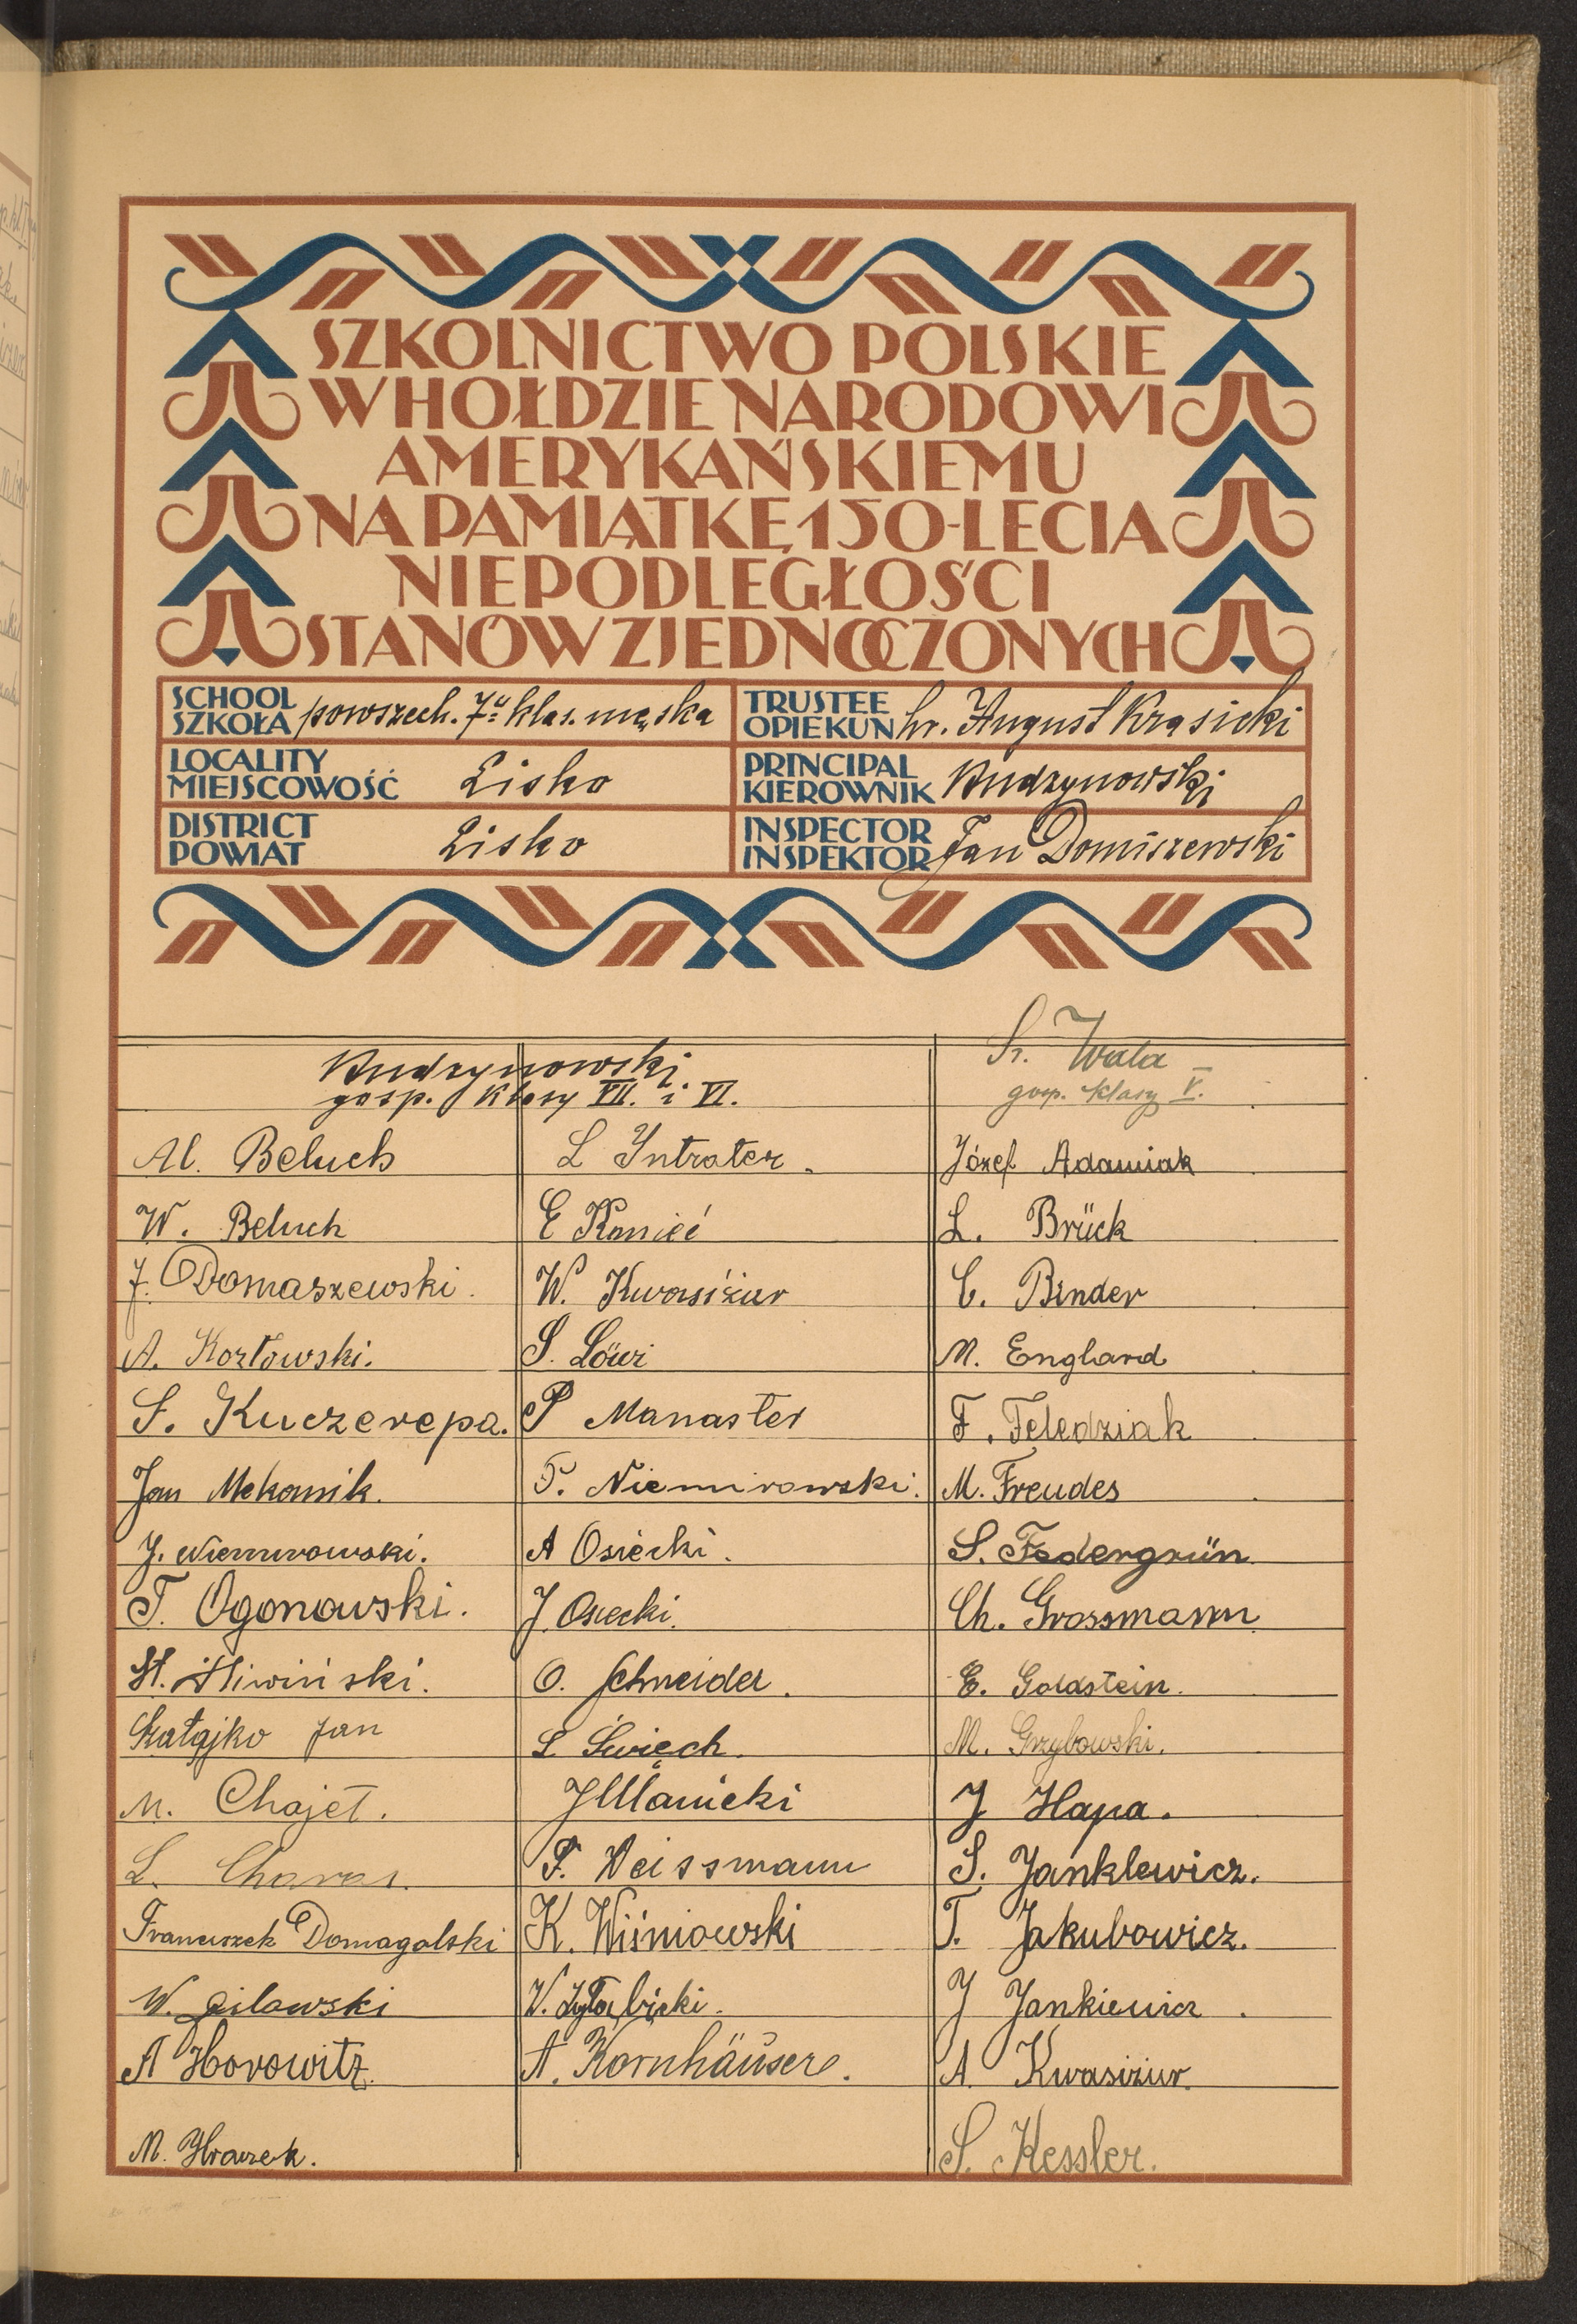 SZKOLNICTWO POLSKIE
W HOŁDZIE NARODOWI
AMERYKAŃSKIEMU
NA PAMIĄTKĘ 150-LECIA
NIEPODLEGŁOŚCI
STANÓW ZJEDNOCZONYCH
SCHOOL
SZKOŁA powszech. 7-u klas. męska
TRUSTEE
OPIEKUN hr. August Krasicki
LOCALITY
MIEJSCOWOŚĆ Lisko
PRINCIPAL
KIEROWNIK Andrzynowski
DISTRICT
POWIAT Lisko
INSPECTOR
INSPEKTOR Jan Domiszewski
Andrzynowski
gosp. klasy VII. i VI.
Al. Beluch
W. Beluch
J. Domaszewski.
A. Kozłowski.
S. Kuczerepa.
Jan Mekamik.
J. Niemirowski.
T. Ogonowski.
St. Śliwiński.
Szałajko Jan
M. Chajet.
L. Charas.
Franciszek Domagalski
W. Gilowski
A Horowitz.
M. Hraczek.
L Intrater.
E Konieć
W. Kwasiżur
S. Löwi
P Manaster
T. Niemirowski.
A Osiecki.
J. Osiecki.
O. Schneider.
S. Święch.
J Ulanicki
F. Weissmann
K. Wiśniowski
W.
A. Kornhäuser.
Fr. Wala
gosp. klasy V.
Józef Adamiak
L. Brück
C. Binder
M. Englard
F. Feledziak
M. Freudes
S. Federgrün
Ch. Grossmann
E. Goldstein.
M. Grzybowski.
J Hapa.
S. Janklewicz.
T. Jakubowicz.
J Jankiewicz.
A. Kwasiżur.
S. Kessler.